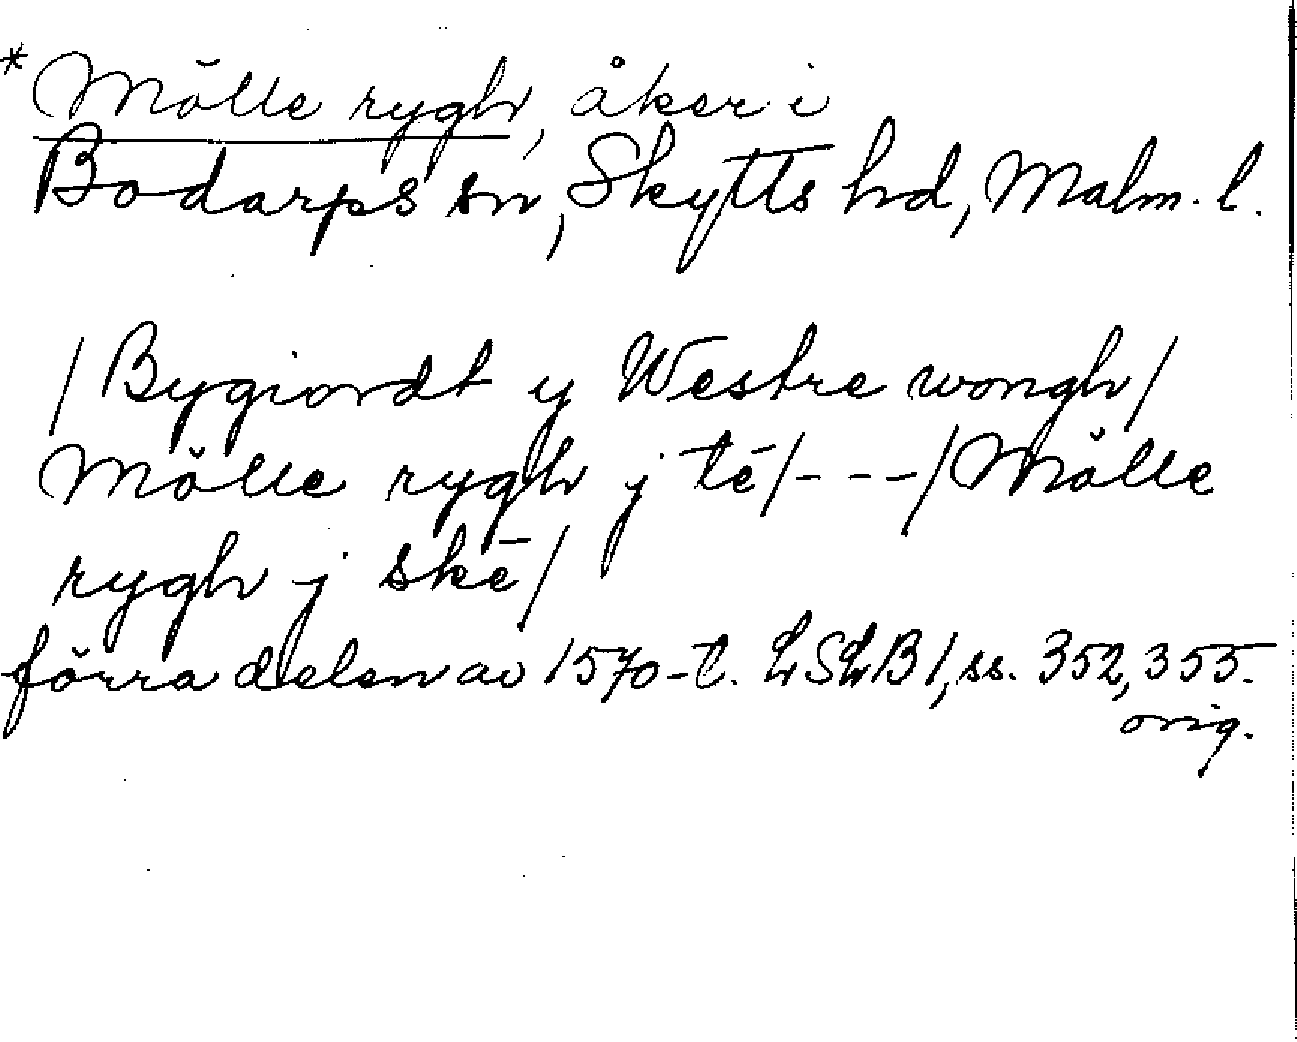 * Mölle rygh, åker i
Bodarps sn, Skytts hd, Malm. l.
/Bygiordt y Westre wongh/
Mölle rygh j tē/---/Mölle
rygh j skē/
förra delen av 1570-t. LSLB1, ss. 352, 353.
orig.